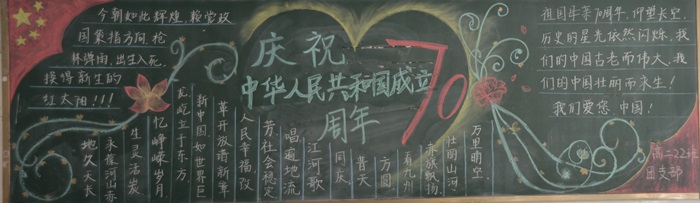 今朝如此辉煌,赖党政
国策指方向,枪
林弹雨,出生入死,
换得新生的
红太阳!!!
庆祝
中华人民共和国成立
70
周年
祖国华诞70周年,仰望长空,
历史的星光依然闪烁,我
们的中国古老而伟大,我
们的中国壮丽而永生!
我们爱您,中国!
万里晴空,
壮丽山河,
赤旗飘扬,
看九州
方圆,
普天
同庆
江河歌
唱遍地流
芳,社会稳定
人民幸福,改
革开放谱新章
新中国如世界巨
龙屹立于东方,
忆峥嵘岁月,
生灵活炭
永葆河山寿,
地久天长
高二22班
团支部